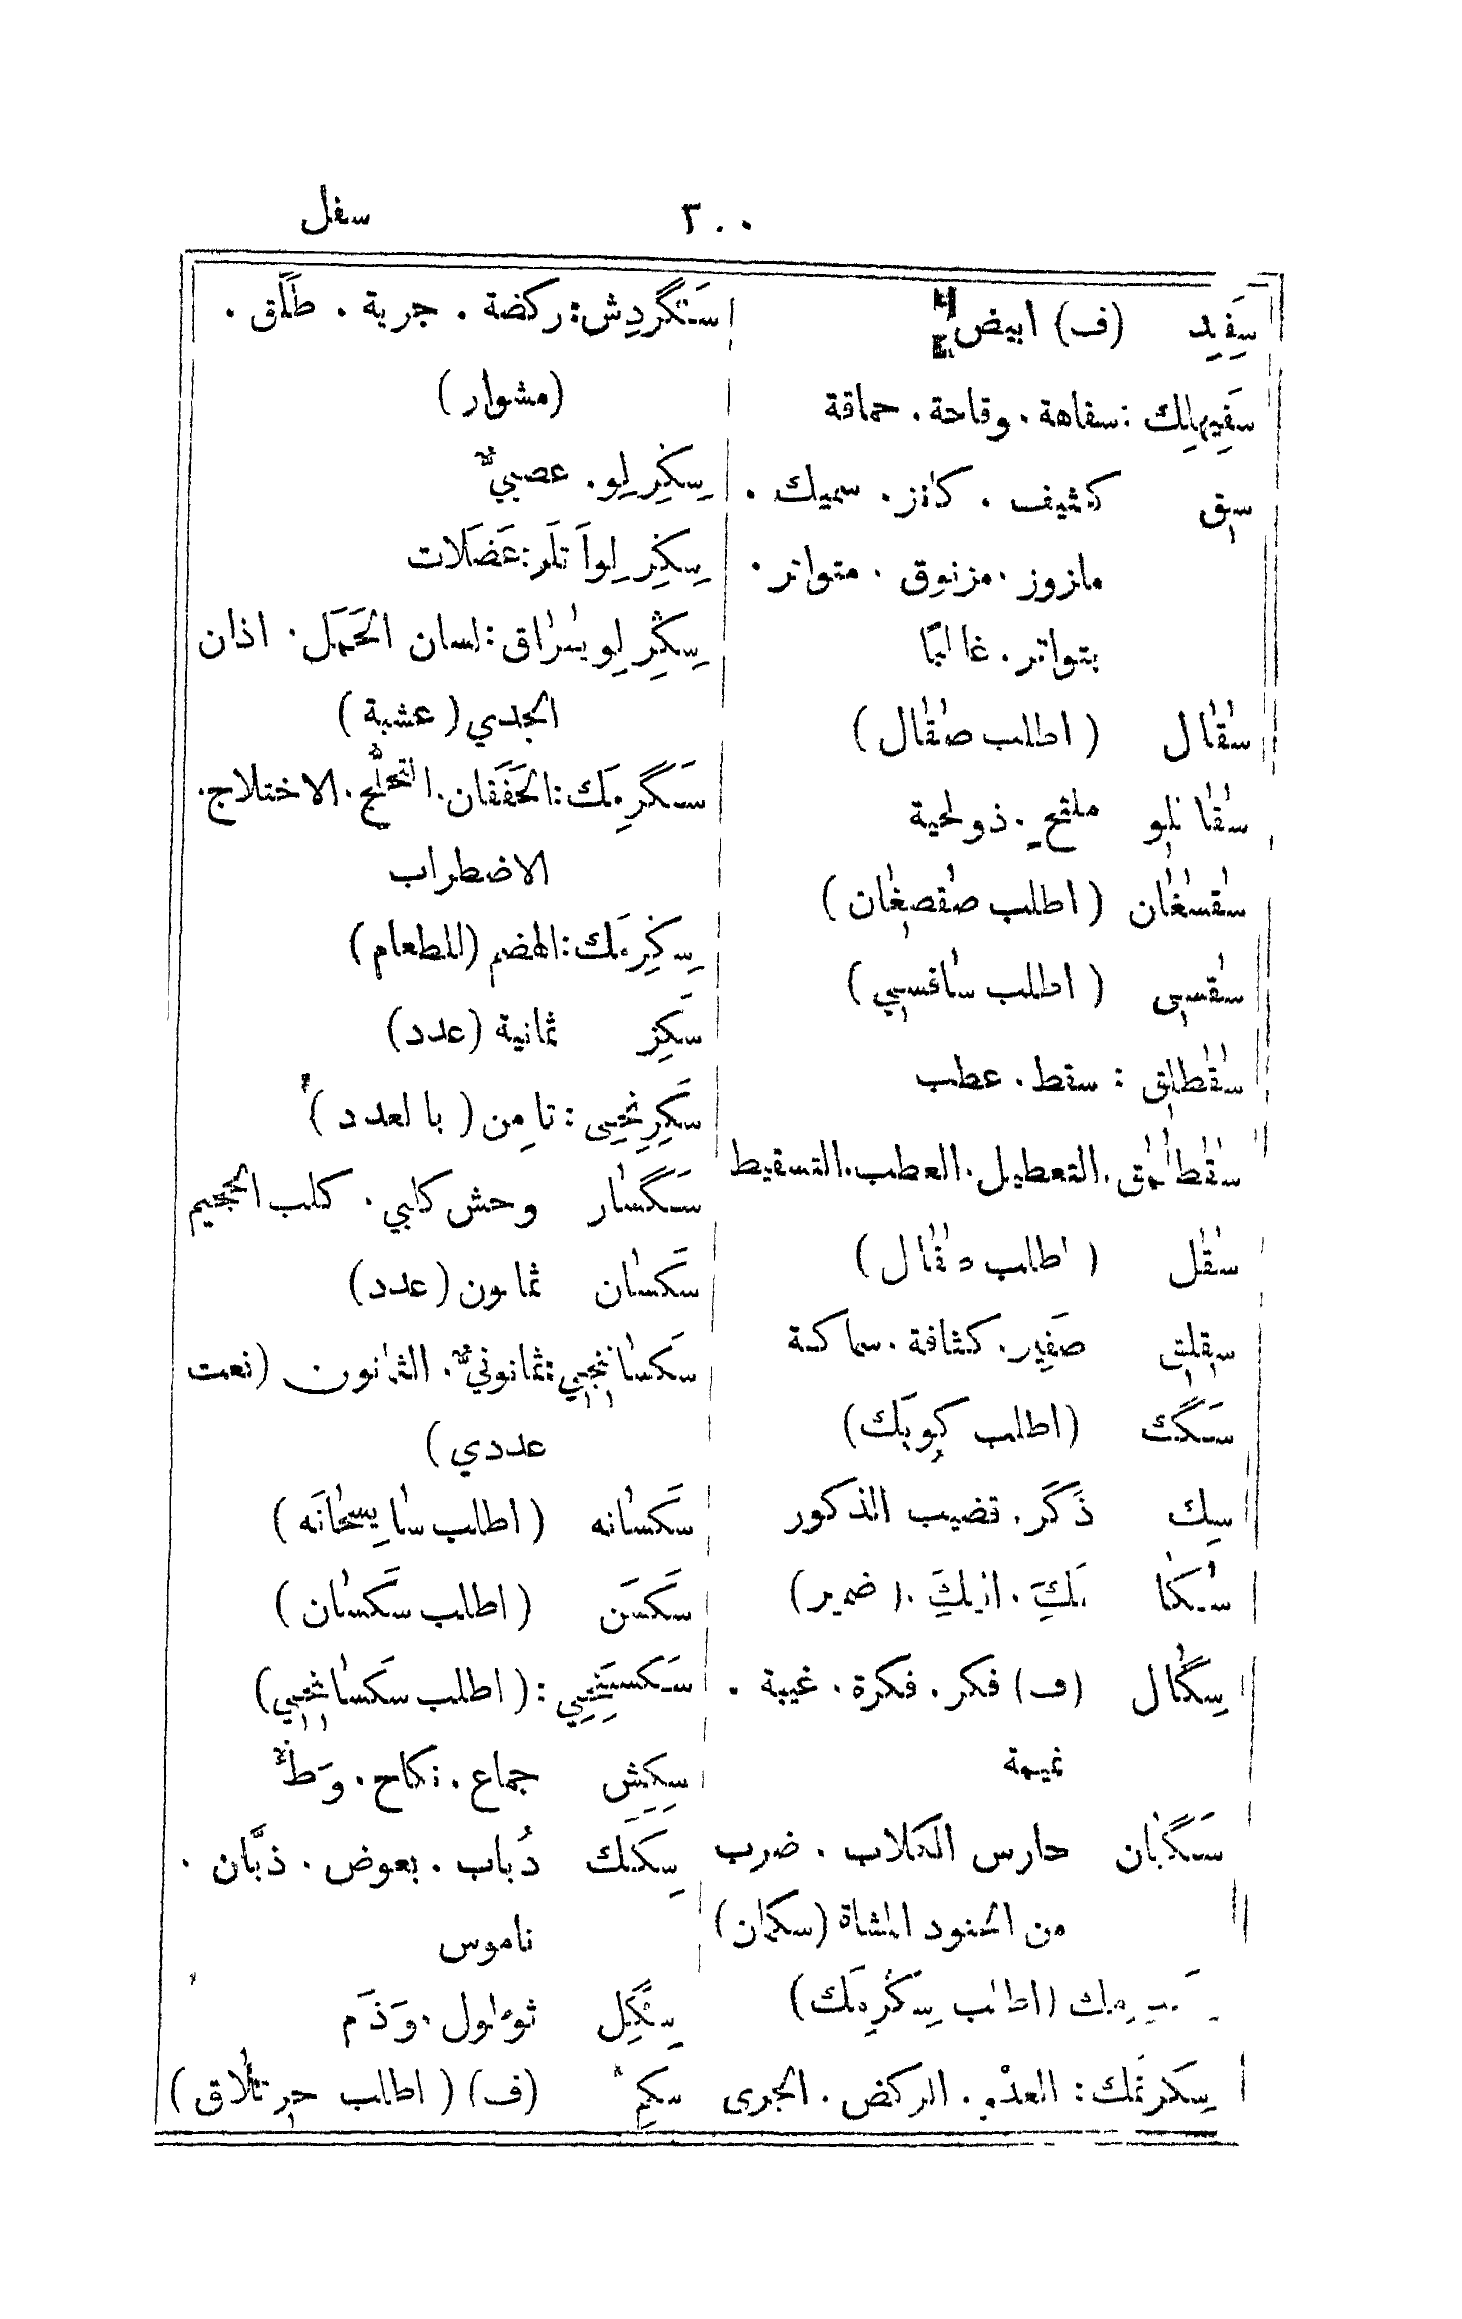 ٣٠٠
سفل
سَفِيد (ف) ابيض
سَفِيهلِك : سفاهة . وقاحة . حماقة
سق كثيف . كانز . سميك .
مازوز . مزنوق . متواتر .
بتواتر . غالبًا
سقال (اطلب صقال)
سقالو ملتحٍ . ذو لحية
سقسغان (اطلب صقصغان)
سقسى (اطلب ساقسى)
سقطلق : سقط . عطب
سقطلمق . التعطيل . العطب . التسقيط
سقل (اطلب صقال)
سقلق صَفِير . كثافة . سماكة
سَگَك (اطلب كوپك)
سِك ذَكَر . قضيب الذكور
سكا لَكَ . اليكَ . (ضمير)
سِگال (ف) فكر . فكرة . غيبة .
نميمة
سَگبان حارس الكلاب . ضرب
من الجنود المشاة (سكمان)
مك (اطلب سِكْرِمَك)
سِكرتمَك : العدْو . الركض . الجرى
سَنگردِش : ركضة . جرية . طَلَق .
(مشوار)
سِكِرلِو . عصبيٌّ
سِكِرلِو اَتلَر : عَضَلات
سِكِرلِو يبراق : لسان الحَمَل . اذان
الجدي (عشبة)
سَگرِمَك : الخَفَقان . التخلّج . الاختلاج .
الاضطراب
سِكِرمَك : الهضم (للطعام)
سَكِز ثمانية (عدد)
سَكِزِنجِى : ثامِن (بالعدد)
سَگسار وحش كلبي . كلب الجحيم
سَكسان ثمانون (عدد)
سَكسانجي : ثمانونيٌّ . الثمانون (نعت
عددي)
سَكسانه (اطلب سايسخانَه)
سَكسَن (اطلب سَكسان)
سَكسَنِجِي : (اطلب سَكسانجي)
سِكِش جماع . نكاح . وَطْءٌ
سِكَك ذُباب . بعوض . ذبَّان .
ناموس
سِگِل ثؤلول . وَذَم
سكِم (ف) (اطلب حرتلاق)